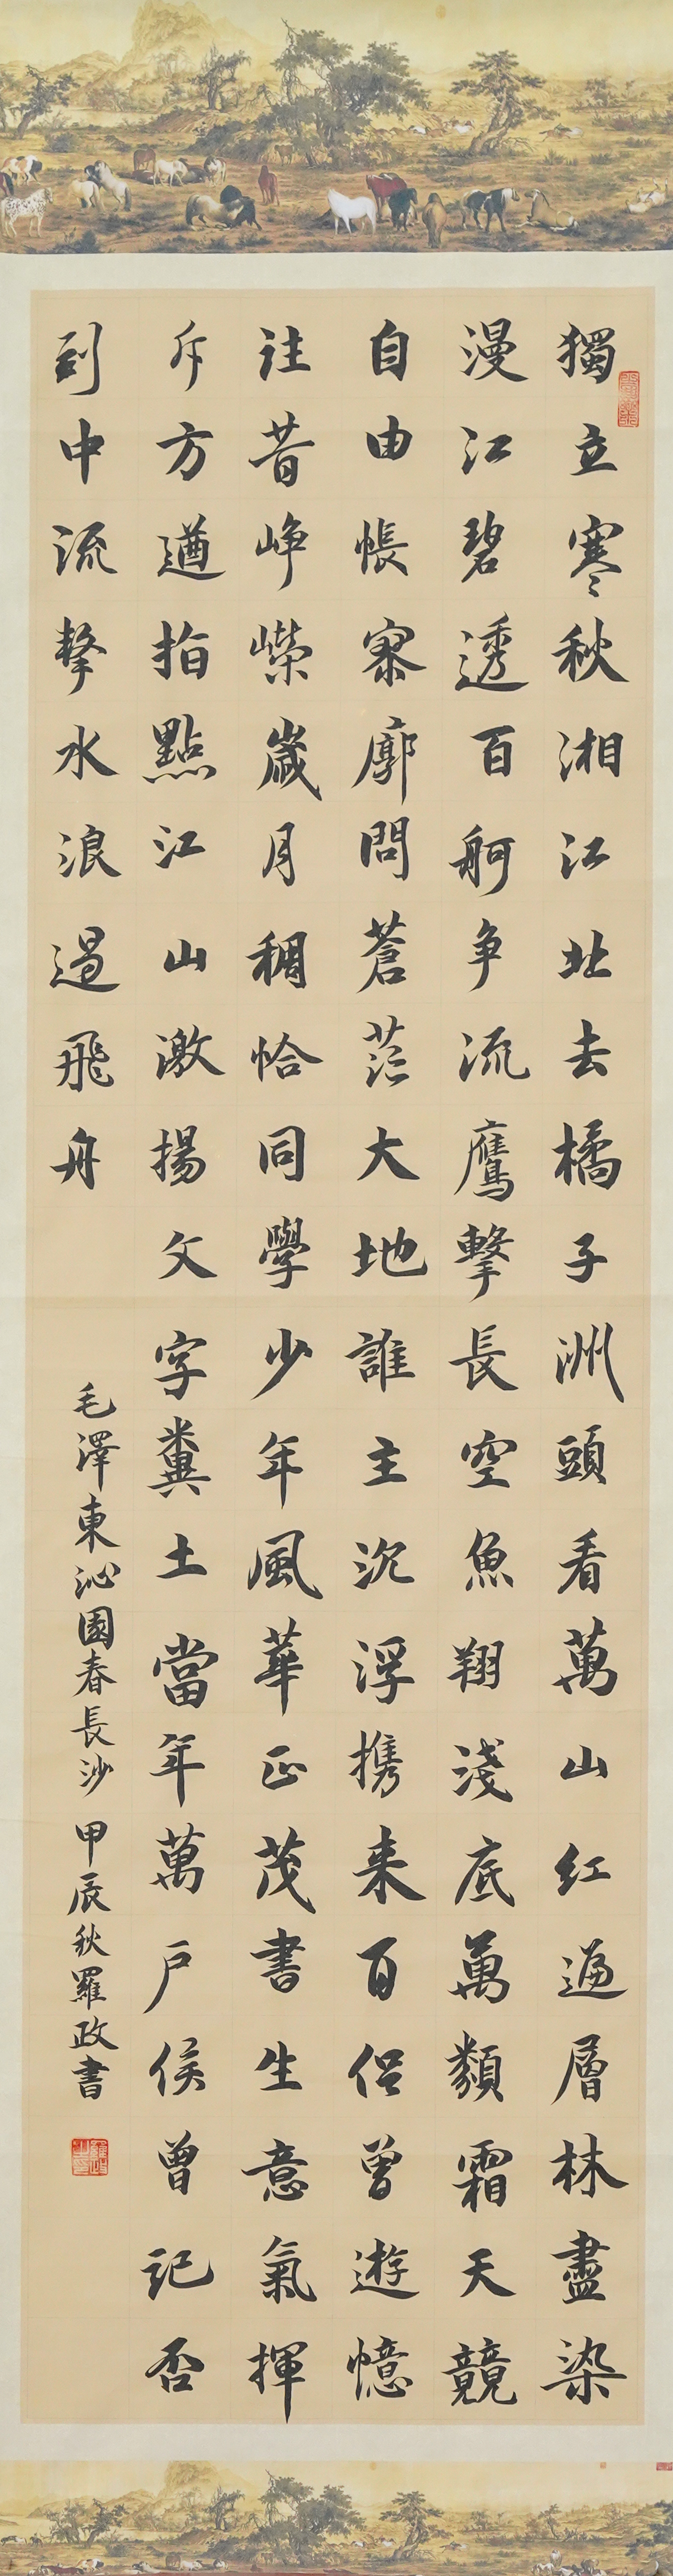 獨立寒秋湘江北去橘子洲頭看萬山紅遍層林盡染
漫江碧透百舸爭流鷹擊長空魚翔淺底萬類霜天競
自由悵寥廓問蒼茫大地誰主沉浮携来百侶曾遊憶
往昔崢嶸歲月稠恰同學少年風華正茂書生意氣揮
斥方遒指點江山激揚文字糞土當年萬戶侯曾記否
到中流擊水浪遏飛舟
毛澤東沁園春長沙 甲辰秋羅政書